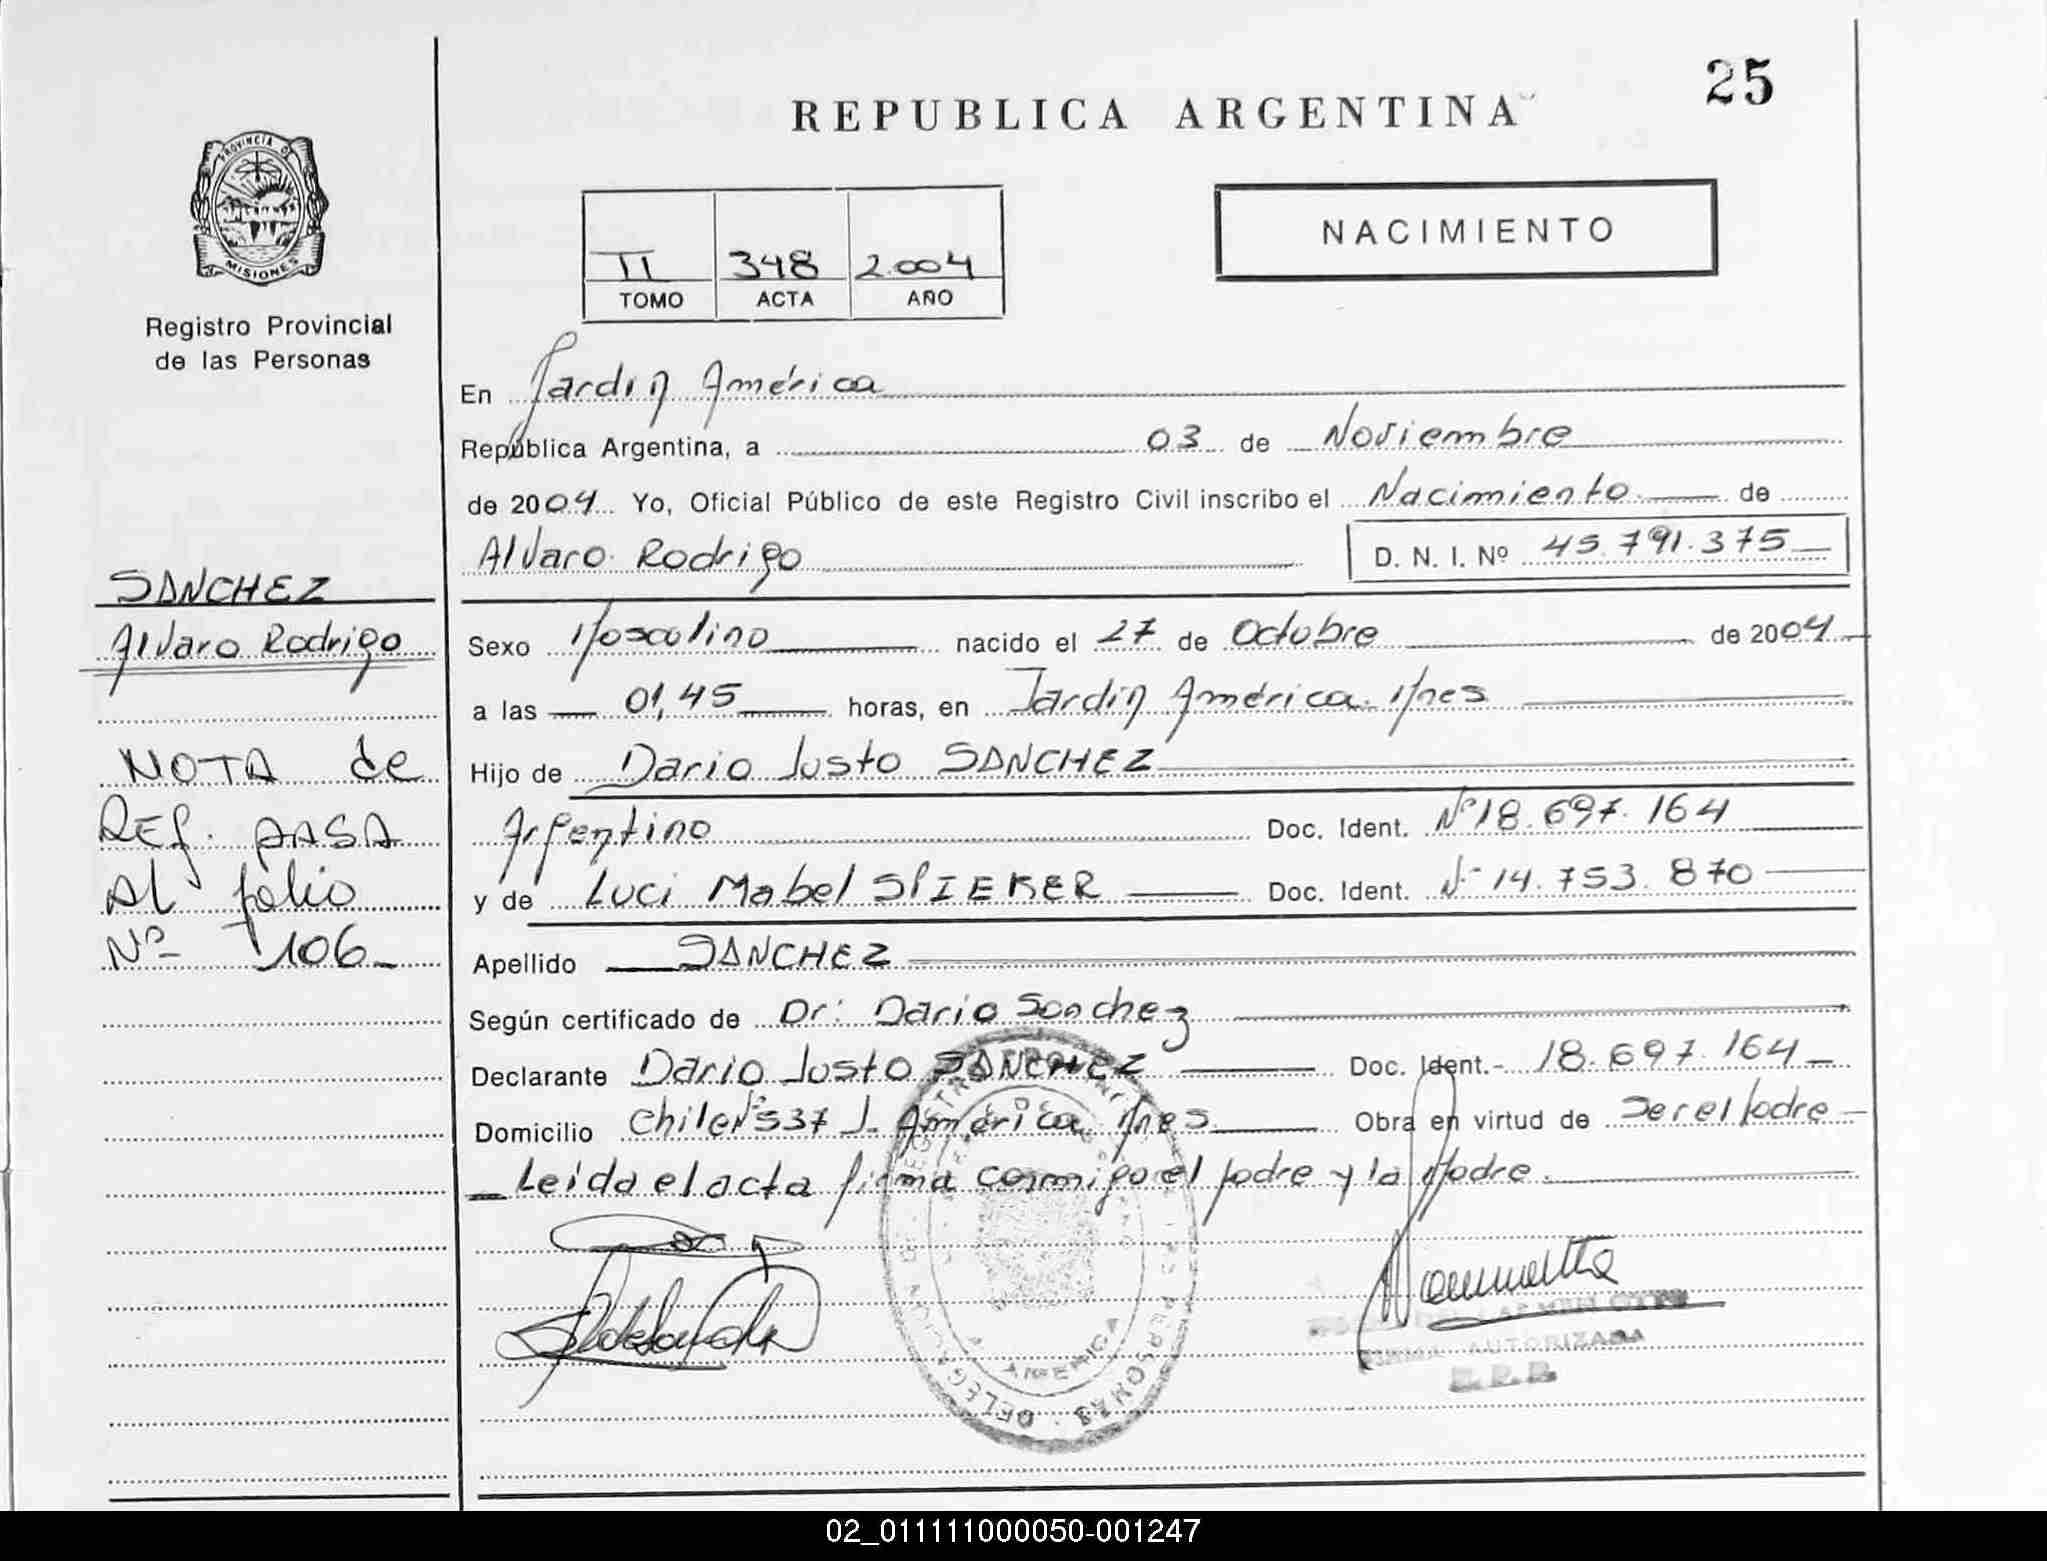 25
REPUBLICA ARGENTINA
PROVINCIA DE
MISIONES
Registro Provincial
de las Personas
II 348 2.004
TOMO ACTA AÑO
NACIMIENTO
En Jardin América
República Argentina, a 03 de Noviembre
de 2004 Yo, Oficial Público de este Registro Civil inscribo el Nacimiento de
Alvaro Rodrigo D. N. I. Nº 45.791.375
SANCHEZ
Alvaro Rodrigo
Sexo Masculino nacido el 27 de Octubre de 2004
a las 01,45 horas, en Jardin América. Mnes
Hijo de Dario Justo SANCHEZ
Argentino Doc. Ident. Nº 18.697.164
y de Luci Mabel SPIEKER Doc. Ident. Nº 14.753.870
Apellido SANCHEZ
NOTA de
REf. PASA
Al folio
Nº 106
Según certificado de Dr: Dario Sanchez
Declarante Dario Justo SANCHEZ Doc. Ident.- 18.697.164
Domicilio Chile Nº 537 J. América Mnes Obra en virtud de Ser el Padre
Leida el acta firma conmigo el padre y la Madre.
DELEGACION DE
PERSONAS
AMERICA
AUTORIZADA
02_011111000050-001247